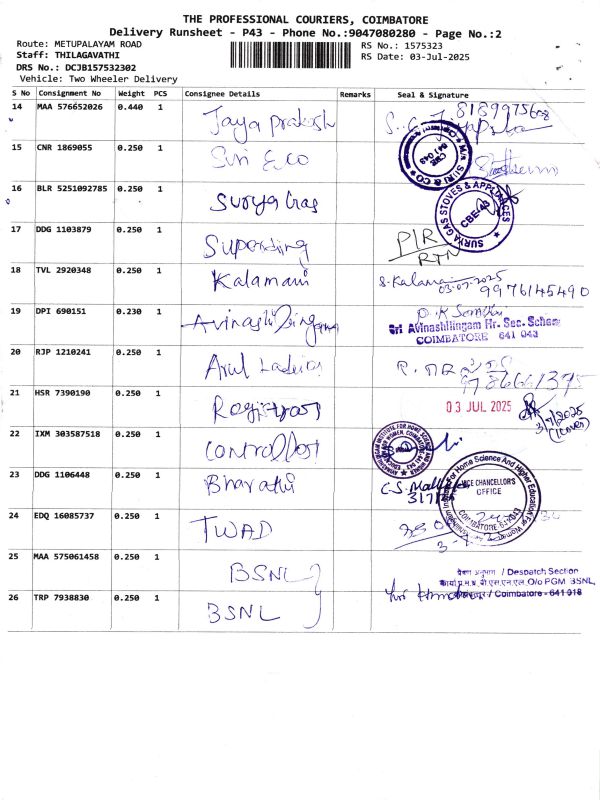 THE PROFESSIONAL COURIERS, COIMBATORE
Delivery Runsheet - P43 - Phone No.:9047080280 - Page No.:2
Route: METUPALAYAM ROAD
RS No.: 1575323
Staff: THILAGAVATHI
RS Date: 03-Jul-2025
DRS No.: DCJB157532302
Vehicle: Two Wheeler Delivery
S No Consignment No Weight PCS Consignee Details Remarks Seal & Signature
14 MAA 576652026 0.440 1 Jaya prakash
15 CNR 1869055 0.250 1 Suri & co
M/s. SURI & CO
CBE 641 043
16 BLR 5251092785 0.250 1 Surya Gas
SURYA GAS STOVES & APPLIANCES
CBE-43
17 DDG 1103879 0.250 1 P/R
RTN
18 TVL 2920348 0.250 1 Kalamani S. Kalamani
03-07-2025
9976145490
19 DPI 690151 0.230 1
Sri Avinashilingam Hr. Sec. School
COIMBATORE 641 043
20 RJP 1210241 0.250 1 Arul
21 HSR 7390190 0.250 1 Registrar 03 JUL 2025
3/7/2025
22 IXM 303587518 0.250 1
23 DDG 1106448 0.250 1 Bharathi
3/7/25
VICE CHANCELLOR'S
OFFICE
COIMBATORE-641043
24 EDQ 16085737 0.250 1 TWAD
25 MAA 575061458 0.250 1 BSNL
प्रेषण अनुभाग / Despatch Section
O/o PGM BSNL,
/ Coimbatore - 641 018
26 TRP 7938830 0.250 1 BSNL